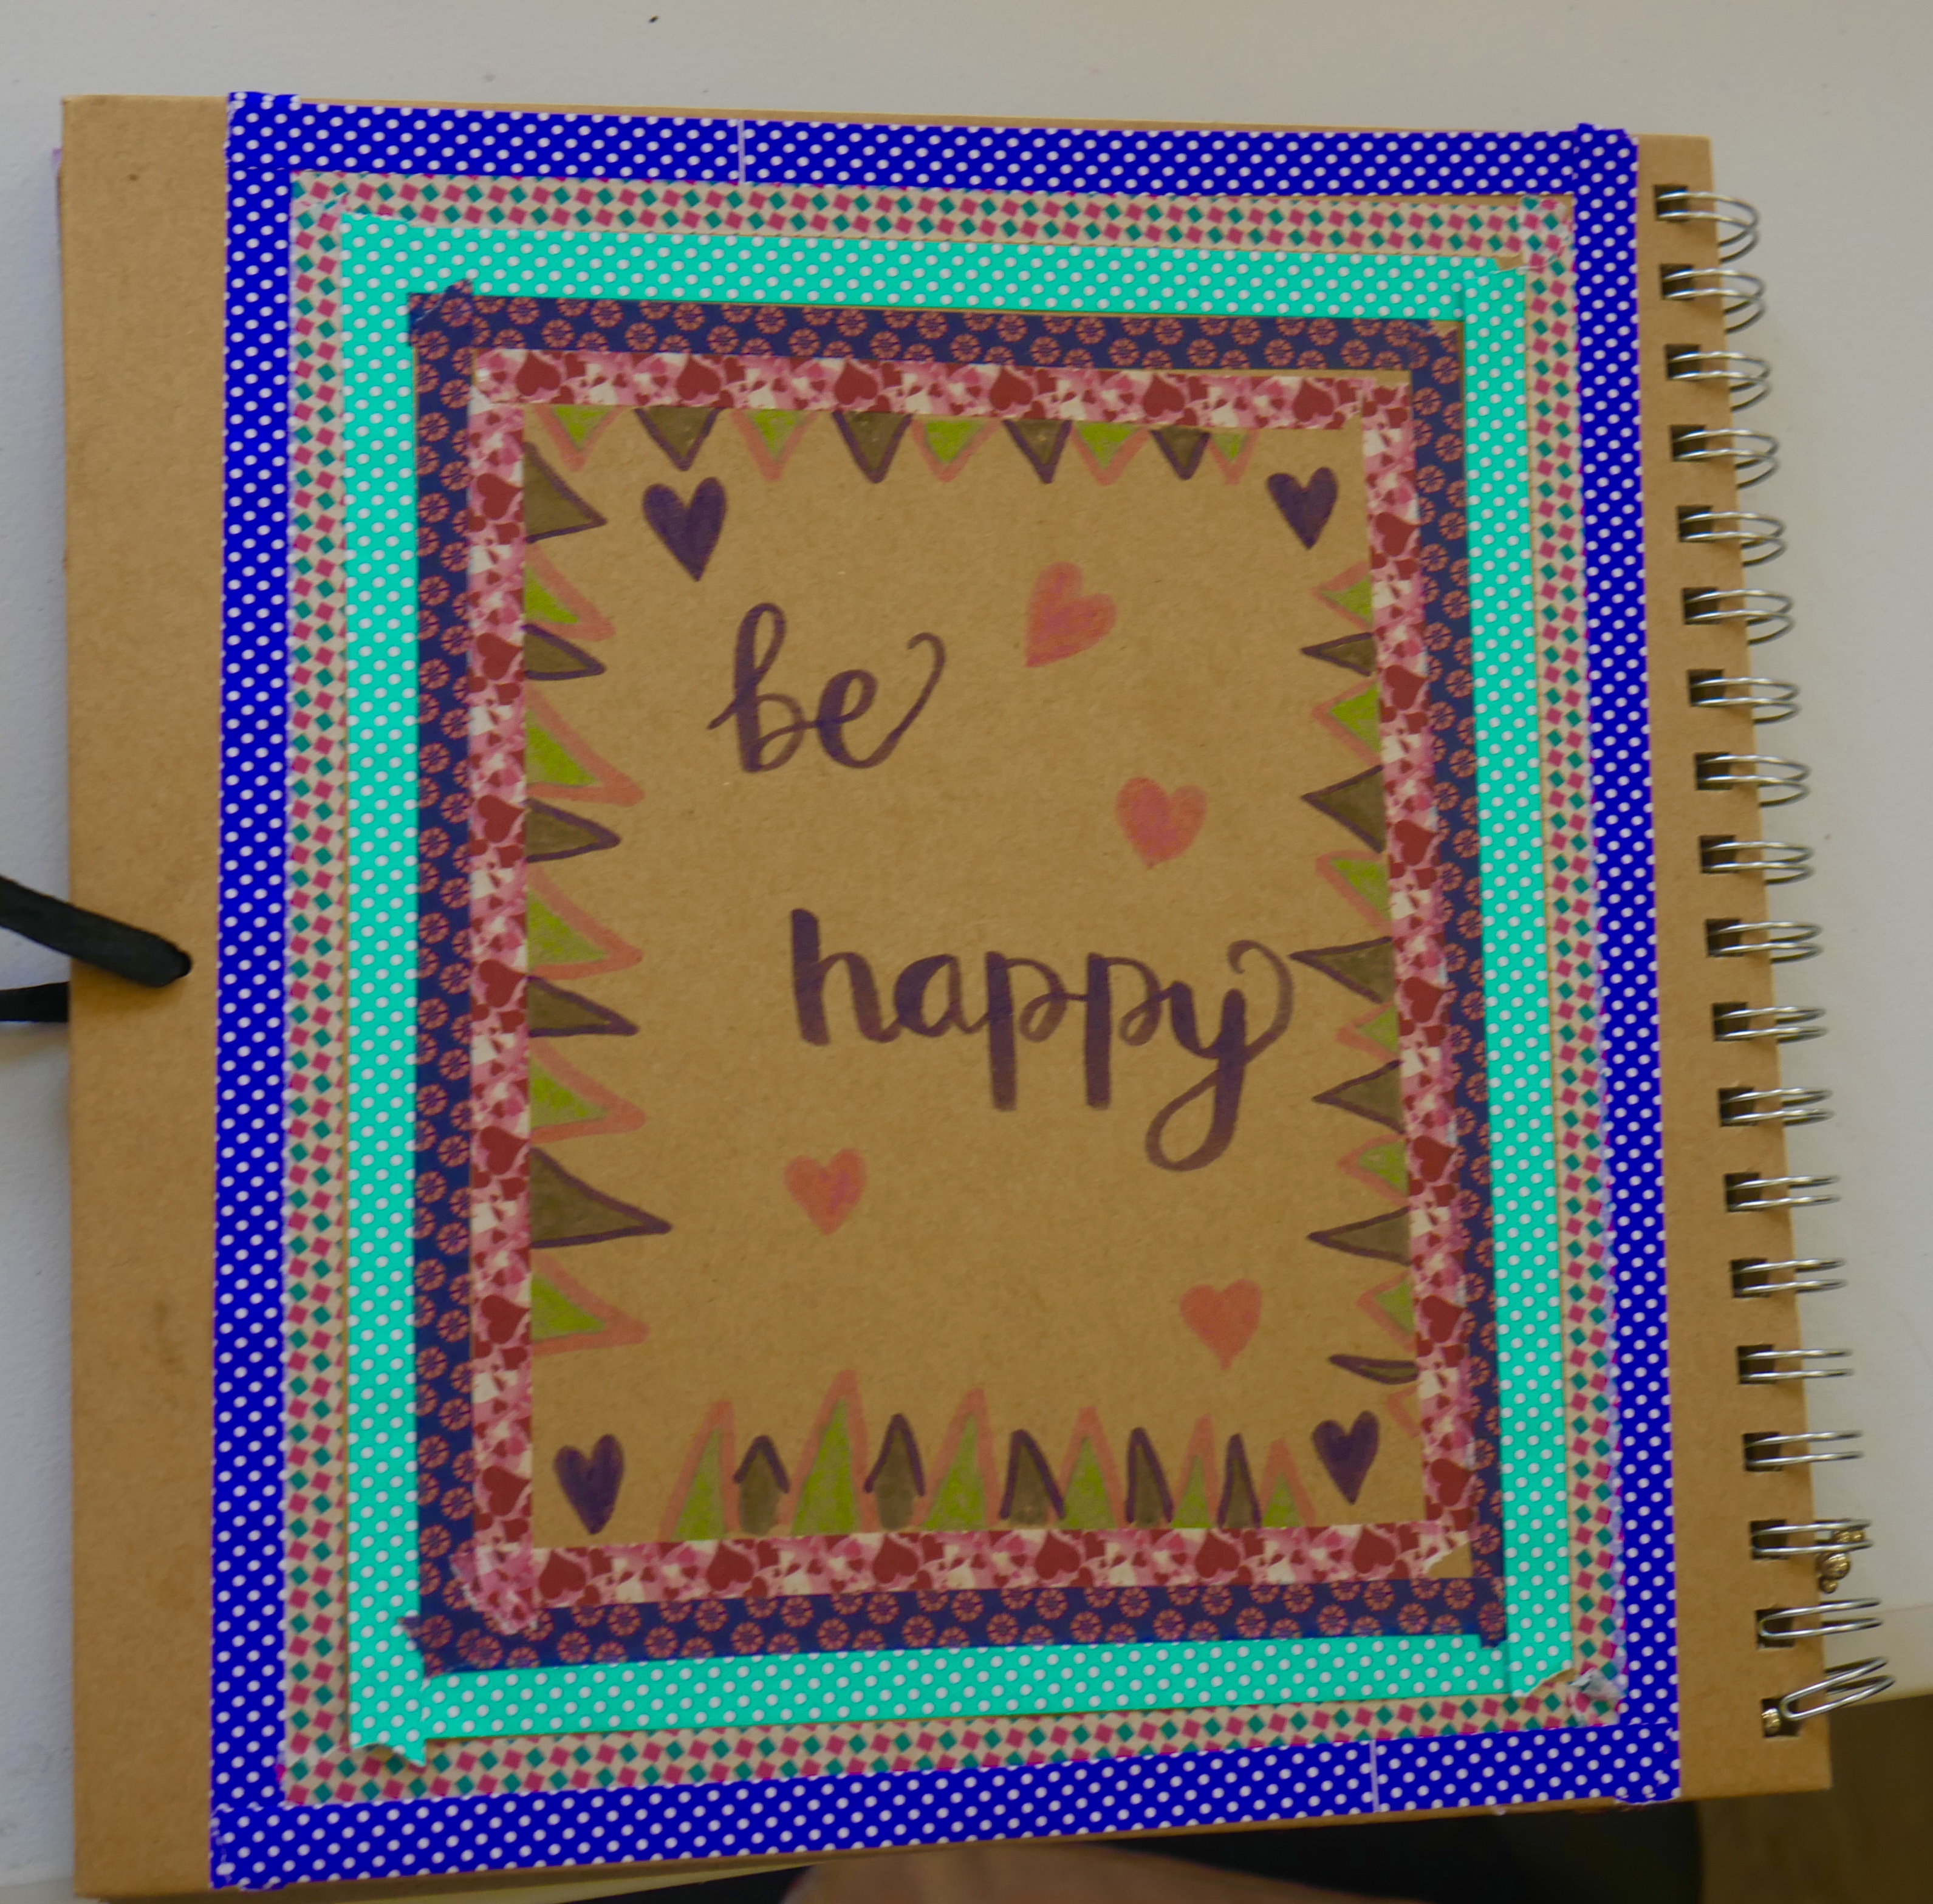 be
happy